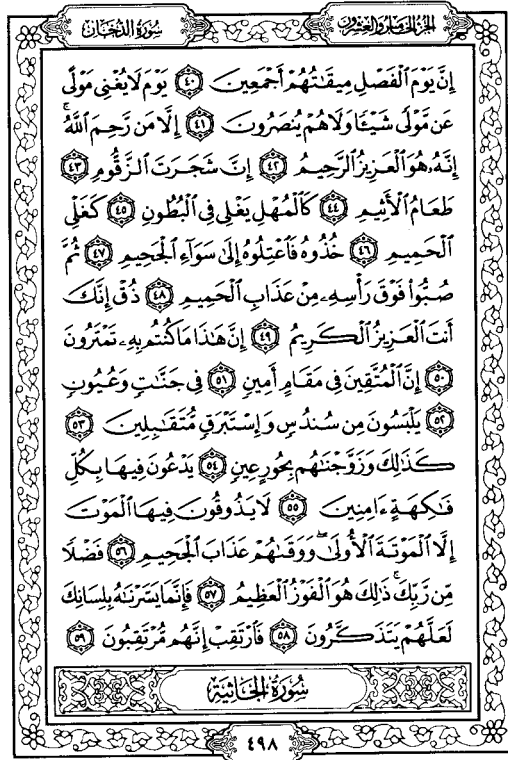 سُورَةُ الدُّخَانِ
الجُزْءُ الخَامِسُ وَالعِشْرُونَ
إِنَّ يَوْمَ ٱلْفَصْلِ مِيقَٰتُهُمْ أَجْمَعِينَ ٤٠ يَوْمَ لَا يُغْنِى مَوْلًى
عَن مَّوْلًى شَيْـًٔا وَلَا هُمْ يُنصَرُونَ ٤١ إِلَّا مَن رَّحِمَ ٱللَّهُ ۚ
إِنَّهُۥ هُوَ ٱلْعَزِيزُ ٱلرَّحِيمُ ٤٢ إِنَّ شَجَرَتَ ٱلزَّقُّومِ ٤٣
طَعَامُ ٱلْأَثِيمِ ٤٤ كَٱلْمُهْلِ يَغْلِى فِى ٱلْبُطُونِ ٤٥ كَغَلْىِ
ٱلْحَمِيمِ ٤٦ خُذُوهُ فَٱعْتِلُوهُ إِلَىٰ سَوَآءِ ٱلْجَحِيمِ ٤٧ ثُمَّ
صُبُّوا۟ فَوْقَ رَأْسِهِۦ مِنْ عَذَابِ ٱلْحَمِيمِ ٤٨ ذُقْ إِنَّكَ
أَنتَ ٱلْعَزِيزُ ٱلْكَرِيمُ ٤٩ إِنَّ هَٰذَا مَا كُنتُم بِهِۦ تَمْتَرُونَ
٥٠ إِنَّ ٱلْمُتَّقِينَ فِى مَقَامٍ أَمِينٍ ٥١ فِى جَنَّٰتٍ وَعُيُونٍ
٥٢ يَلْبَسُونَ مِن سُندُسٍ وَإِسْتَبْرَقٍ مُّتَقَٰبِلِينَ ٥٣
كَذَٰلِكَ وَزَوَّجْنَٰهُم بِحُورٍ عِينٍ ٥٤ يَدْعُونَ فِيهَا بِكُلِّ
فَٰكِهَةٍ ءَامِنِينَ ٥٥ لَا يَذُوقُونَ فِيهَا ٱلْمَوْتَ
إِلَّا ٱلْمَوْتَةَ ٱلْأُولَىٰ ۖ وَوَقَىٰهُمْ عَذَابَ ٱلْجَحِيمِ ٥٦ فَضْلًا
مِّن رَّبِّكَ ۚ ذَٰلِكَ هُوَ ٱلْفَوْزُ ٱلْعَظِيمُ ٥٧ فَإِنَّمَا يَسَّرْنَٰهُ بِلِسَانِكَ
لَعَلَّهُمْ يَتَذَكَّرُونَ ٥٨ فَٱرْتَقِبْ إِنَّهُم مُّرْتَقِبُونَ ٥٩
سُورَةُ الجَاثِيَةِ
٤٩٨